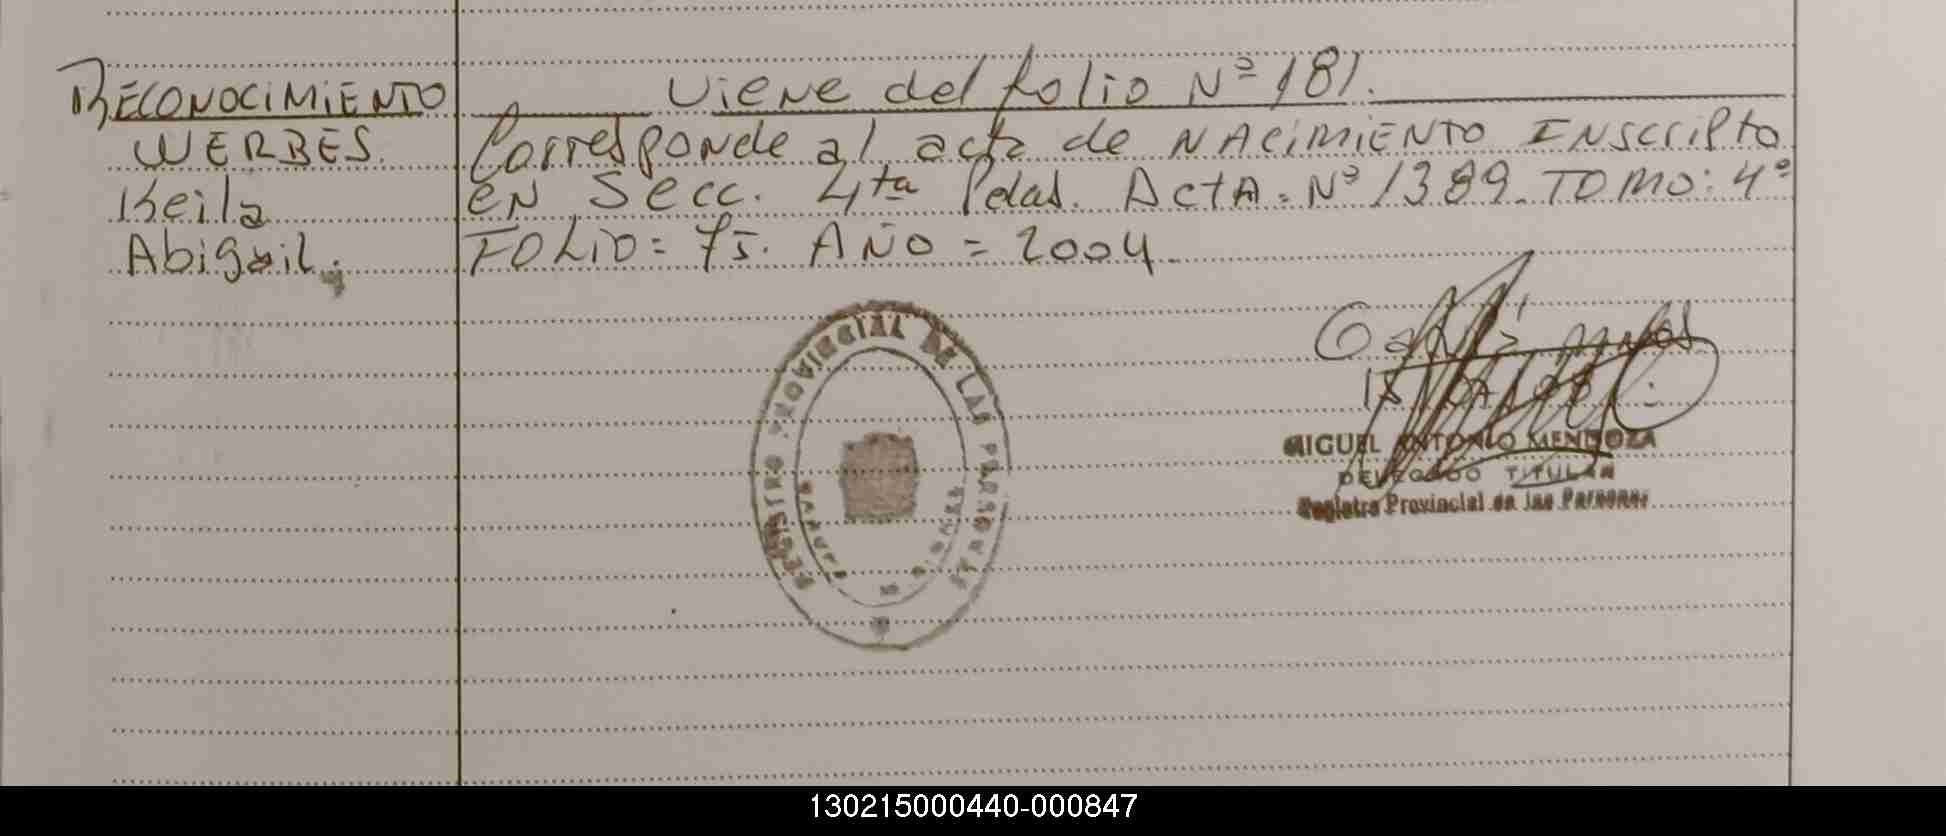 RECONOCIMIENTO
WERBES.
Keila
Abigail.
Viene del folio Nº 181.
Corresponde al acta de NACIMIENTO INSCRIPTO
EN Secc. 4ta Pdas. ACTA = Nº 1389. TOMO: 4º
FOLIO = 75. AÑO = 2004.
REGISTRO PROVINCIAL DE LAS PERSONAS
MIGUEL ANTONIO MENDOZA
DELEGADO TITULAR
Registro Provincial de las Personas
130215000440-000847